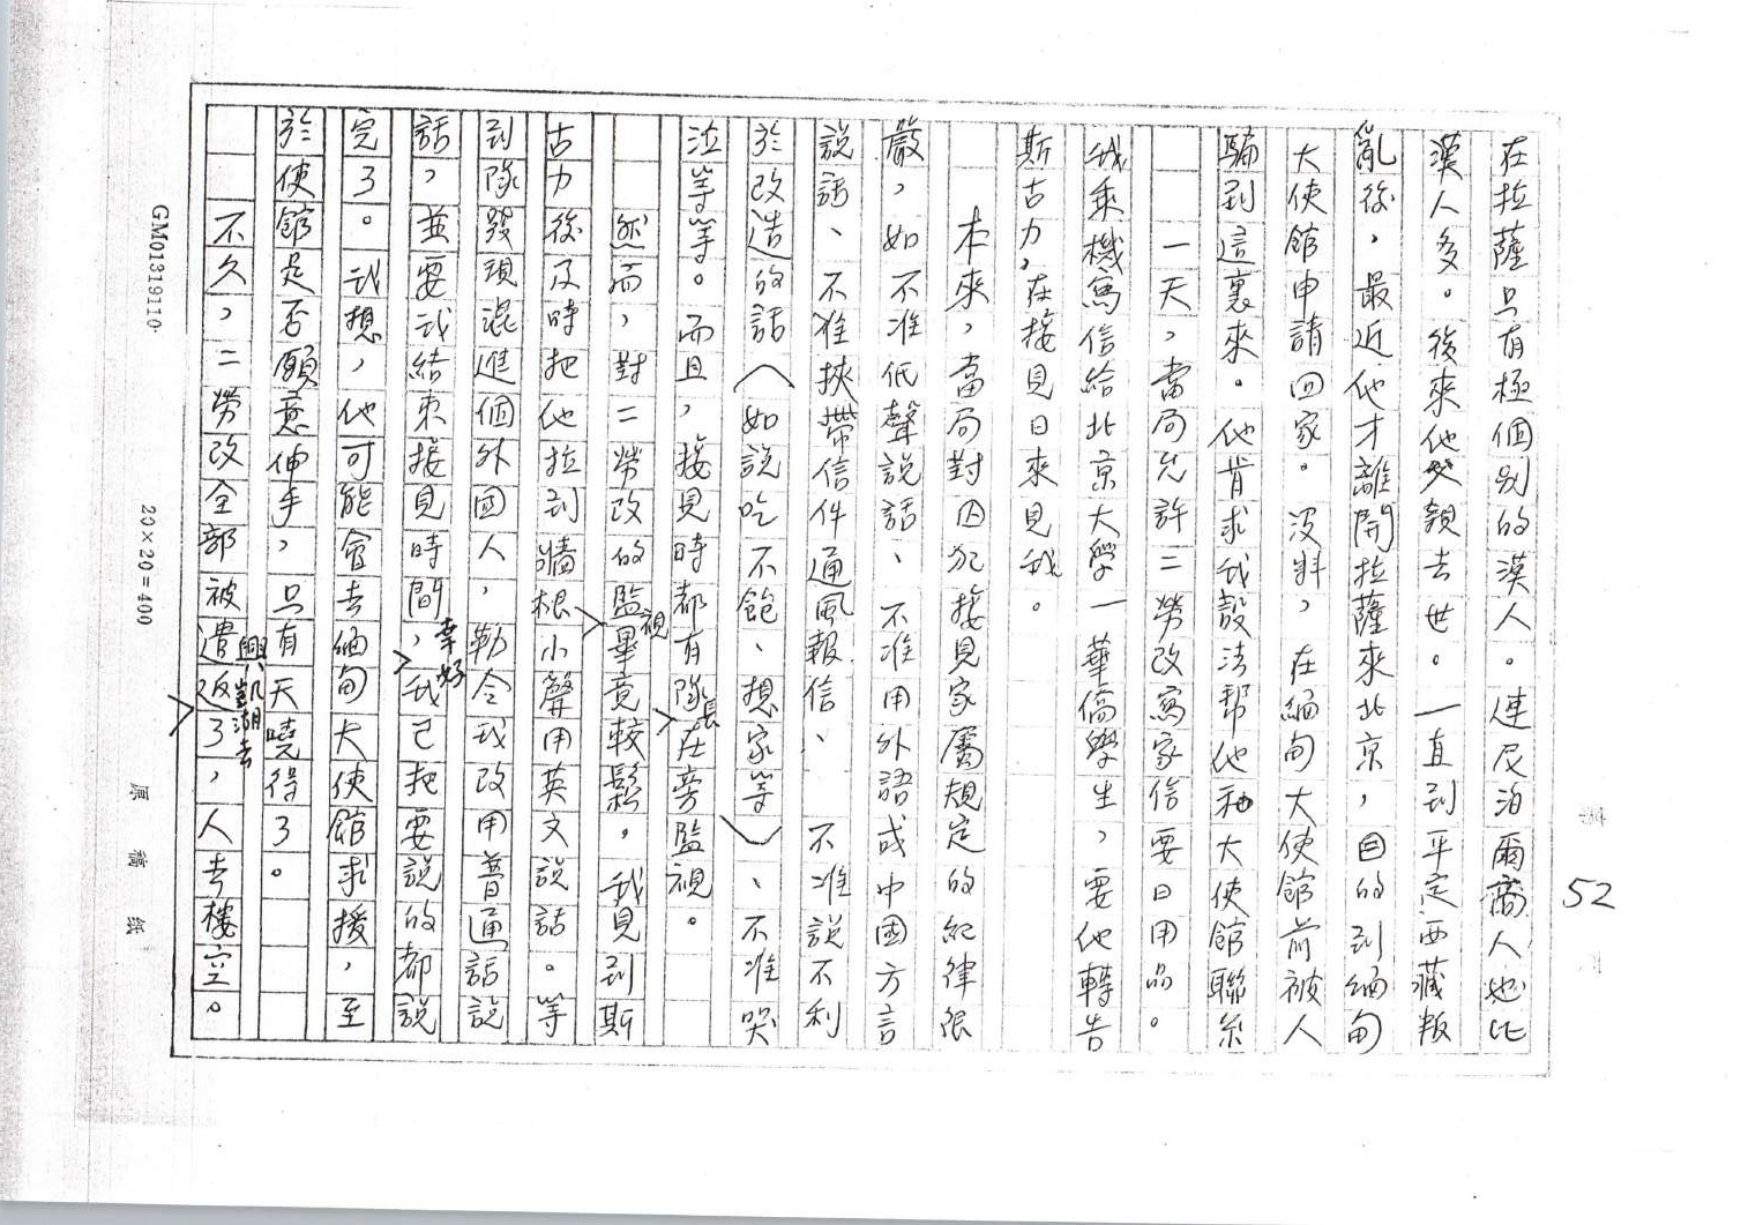 52
在拉薩只有極個別的漢人。連尼泊爾商人也比
漢人多。後來他父親去世。一直到平定西藏叛
亂後，最近他才離開拉薩來北京，目的到緬甸
大使館申請回家。沒料，在緬甸大使館前被人
騙到這裏來。他肯求我設法幫他和大使館聯系
一天，當局允許二勞改寫家信要日用品。
我乘機寫信給北京大學一華僑學生，要他轉告
斯古力，在接見日來見我。
本來，當局對囚犯接見家屬規定的紀律很
嚴，如不准低聲說話、不准用外語或中國方言
說話、不准挾帶信件通風報信、不准說不利
於改造的話（如說吃不飽、想家等）、不准哭
泣等等。而且，接見時都有隊長在旁監視。
然而，對二勞改的監視畢竟較鬆，我見到斯
古力後及時把他拉到牆根小聲用英文說話。等
到隊發現混進個外國人，勒令我改用普通話說
話，並要我結束接見時間，幸好我已把要說的都說
完了。我想，他可能會去緬甸大使館求援，至
於使館是否願意伸手，只有天曉得了。
不久，二勞改全部被遣返興凱湖去了，人去樓空。
GM01319110
20×20=400
原稿紙